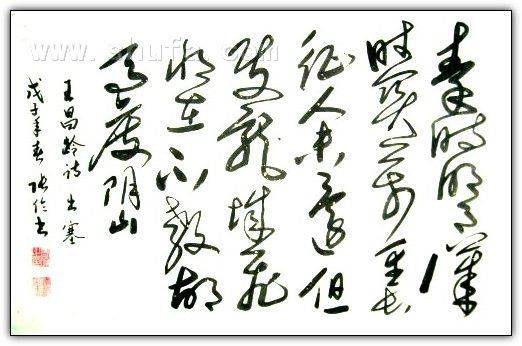 秦时明月汉
时关万里长
征人未还但
使龙城飞
将在不教胡
马度阴山
王昌龄诗 出塞
戊子年春 张书